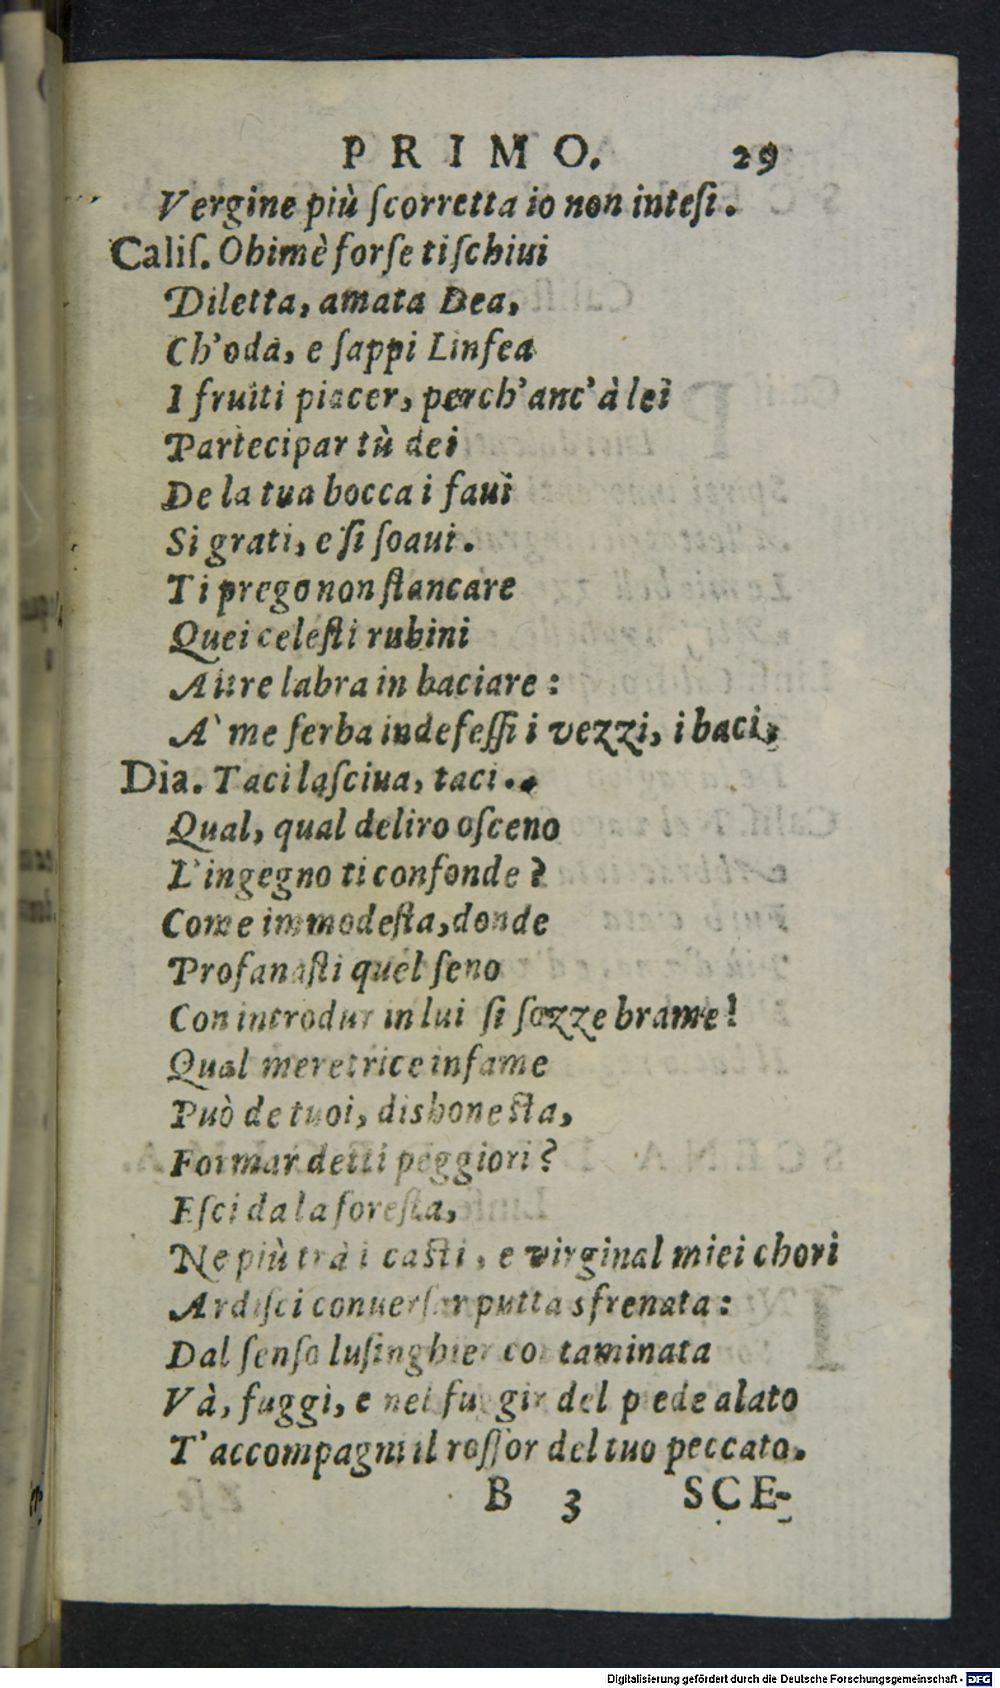 PRIMO. 29
Vergine più ſcorretta io non inteſi.
Caliſ. Ohimè forſe ti ſchiui
Diletta, amata Dea,
Ch'oda, e ſappi Linfea
I fruiti piacer, perch'anc'à lei
Partecipar tù dei
De la tua bocca i faui
Si grati, e ſi ſoaui.
Ti prego non ſtancare
Quei celeſti rubini
Altre labra in baciare:
A' me ſerba indefeſſi i vezzi, i baci,
Dia. Taci laſciua, taci.
Qual, qual deliro oſceno
L'ingegno ti confonde?
Come immodeſta, donde
Profanaſti quel ſeno
Con introdur in lui ſi ſozze brame!
Qual meretrice infame
Può de tuoi, dishoneſta,
Formar detti peggiori?
Eſci da la foreſta,
Ne più trà i caſti, e virginal miei chori
Ardiſci conuerſar putta sfrenata:
Dal ſenſo luſinghier contaminata
Và, fuggi, e nel fuggir del piede alato
T'accompagni il roſſor del tuo peccato.
B 3 SCE-
Digitalisierung gefördert durch die Deutsche Forschungsgemeinschaft - DFG